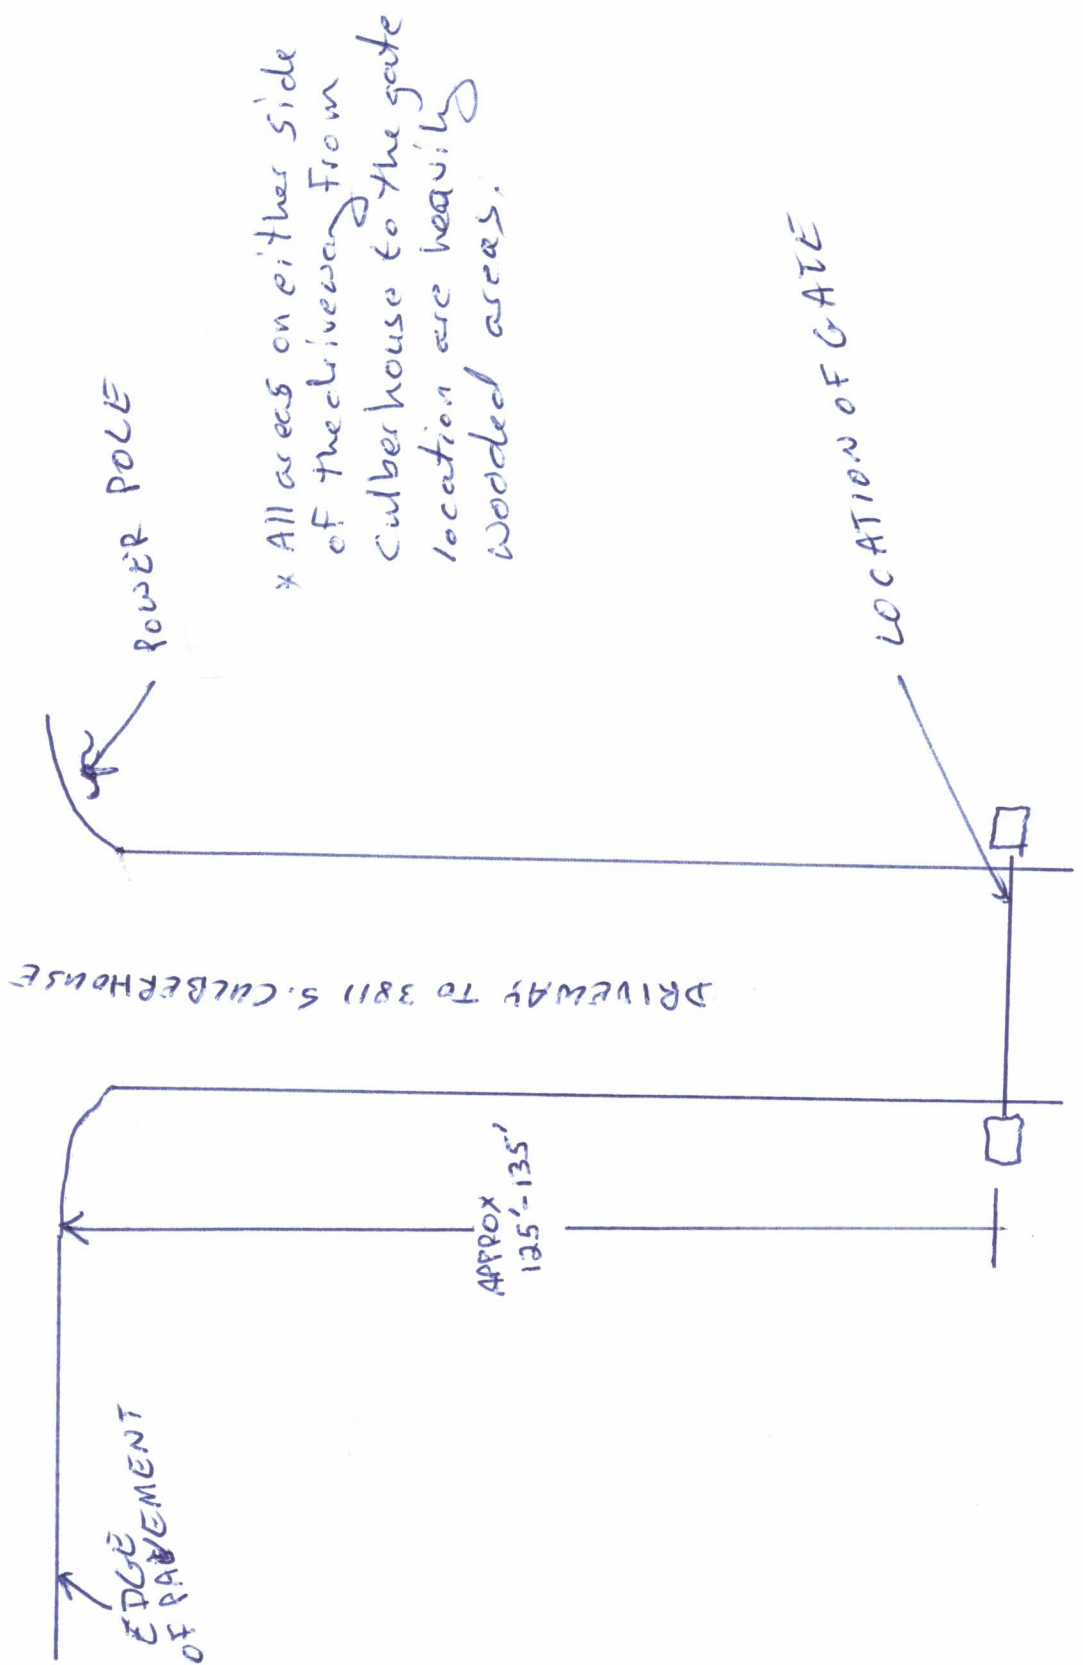 POWER POLE
* All areas on either side
of the driveway From
Culberhouse to the gate
location are heavily
wooded areas.
LOCATION OF GATE
DRIVEWAY TO 3811 S. CULBERHOUSE
APPROX
125'-135'
EDGE
OF PAVEMENT